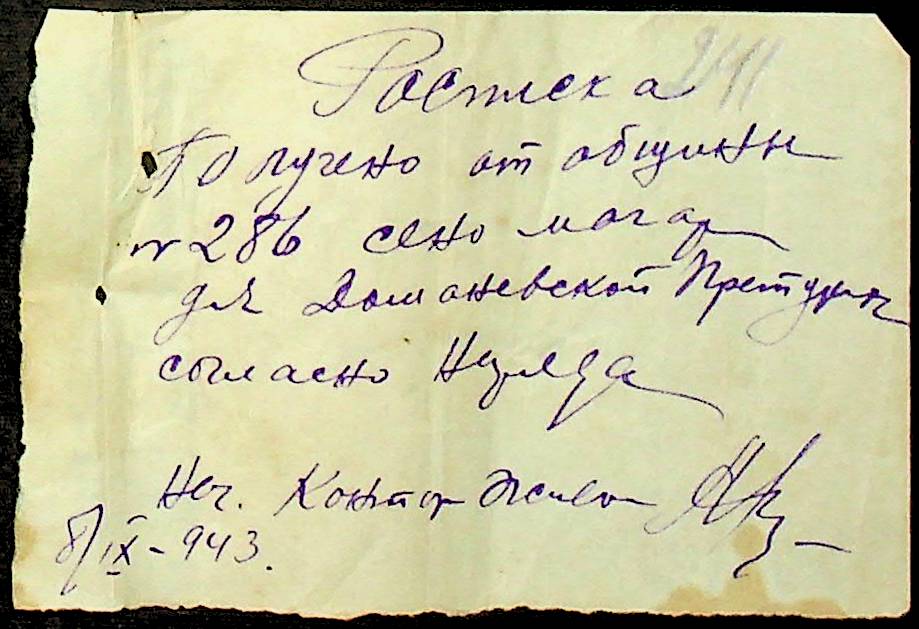 Расписка 241
Получено от общины
№ 286 сено могар
для Доманевской Претуры
согласно Наряда
Нач. Контор
8/IX - 943.